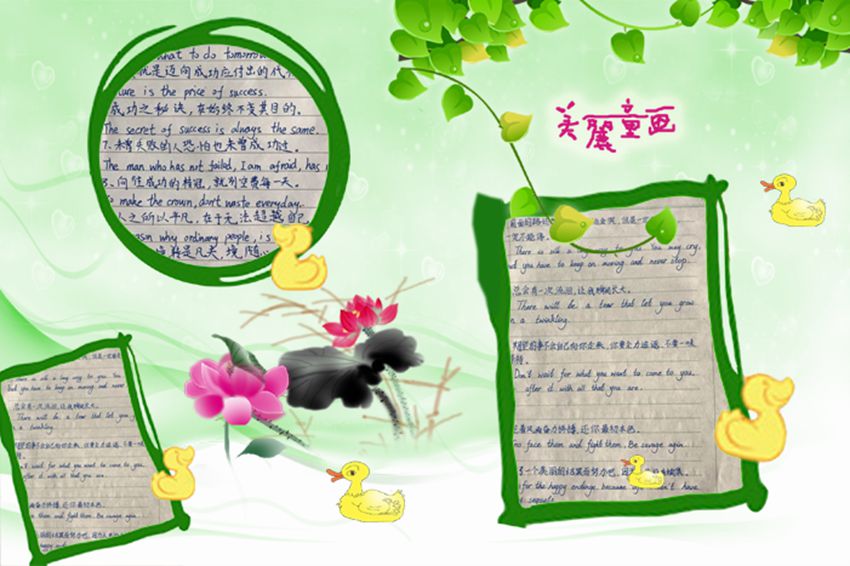 what to do tomorrow
就是迈向成功应付出的代
is the price of success.
成功之秘诀,在始终不变其目的。
The secret of success is always the same.
7.未曾失败的人恐怕也未曾成功过。
The man who has not failed, I am afraid, has
向往成功的桂冠,就别空费每一天。
To make the crown, don't waste everyday.
人之所以平凡,在于无法超越自己。
why ordinary people, is
美麗童画
There is still a long way to go. You may cry,
and you have to keep on moving and never stop.
总会有一次流泪,让我瞬间长大。
There will be a tear that let you grow
in a twinkling.
事不会自己向你走来,你要全力追逐,不要一味
Don't wait for what you want to come to you,
after it with all that you are.
风雨奋力拼搏,还你最初本色。
face them and fight them. Be savage again.
一个美丽的结果而努力吧,因为
for the happy endings, because
There is still a long way to go. You
and you have to keep on moving and never
总会有一次流泪,让我瞬间长大。
There will be a tear that let you
a twinkling.
事不会自己向你走来,你要全力追逐,不要一味
wait for what you want to come to you,
after it with all that you are.
风雨奋力拼搏,还你最初本色。
them and fight them. Be savage again.